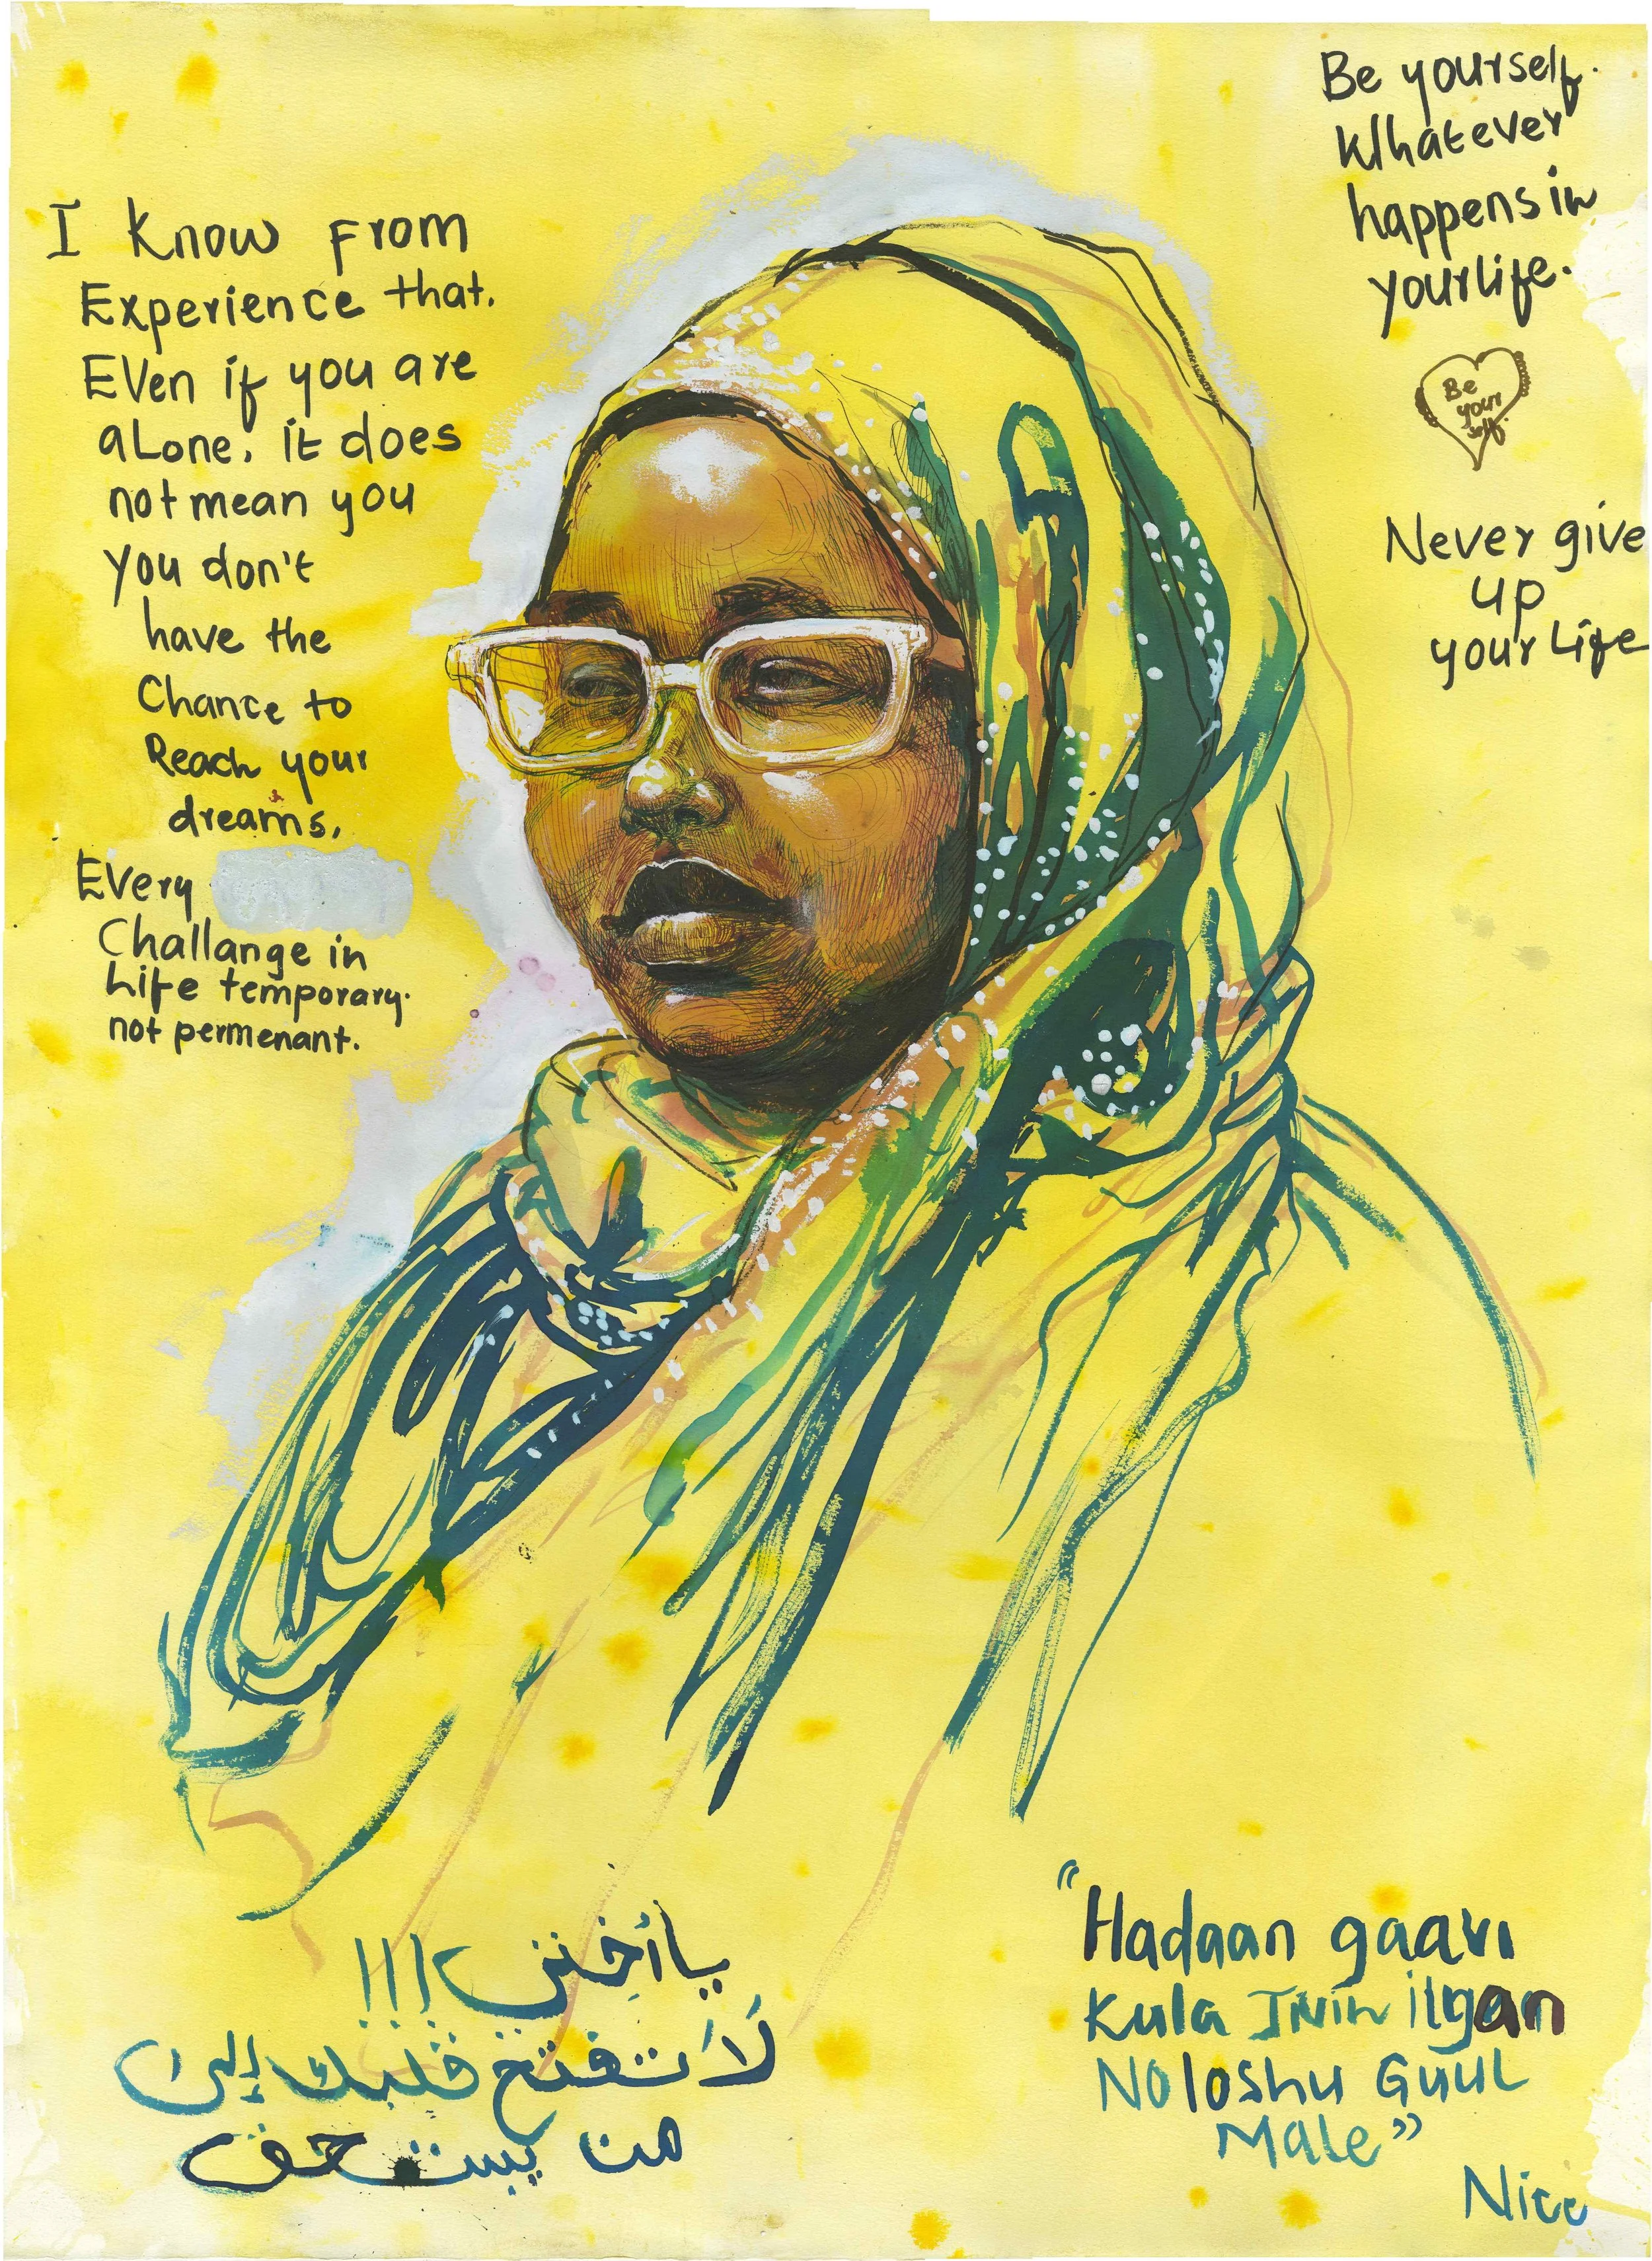 I know from
Experience that.
Even if you are
aLone. it does
not mean you
you don't
have the
Chance to
Reach your
dreams.
Every
Challange in
Life temporary.
not permenant.
Be yourself.
Whatever
happens in
your life.
Be
your
self.
Never give
up
your Life
يا أختي !!!
لا تفتح قلبك إلى
من يستحق
"Hadaan gaari
Kula Inin ilgan
Noloshu Guul
Male"